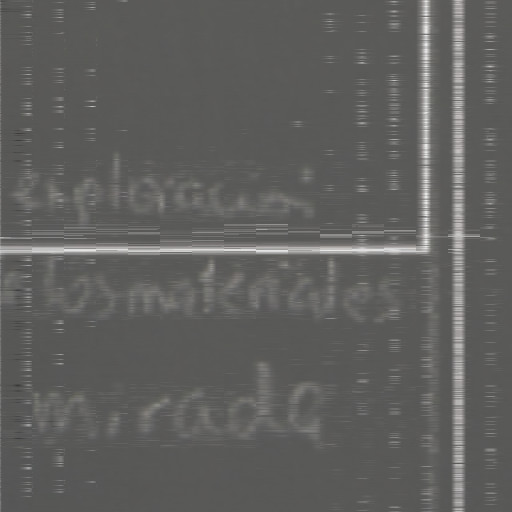 exploración
los materiales
mirada